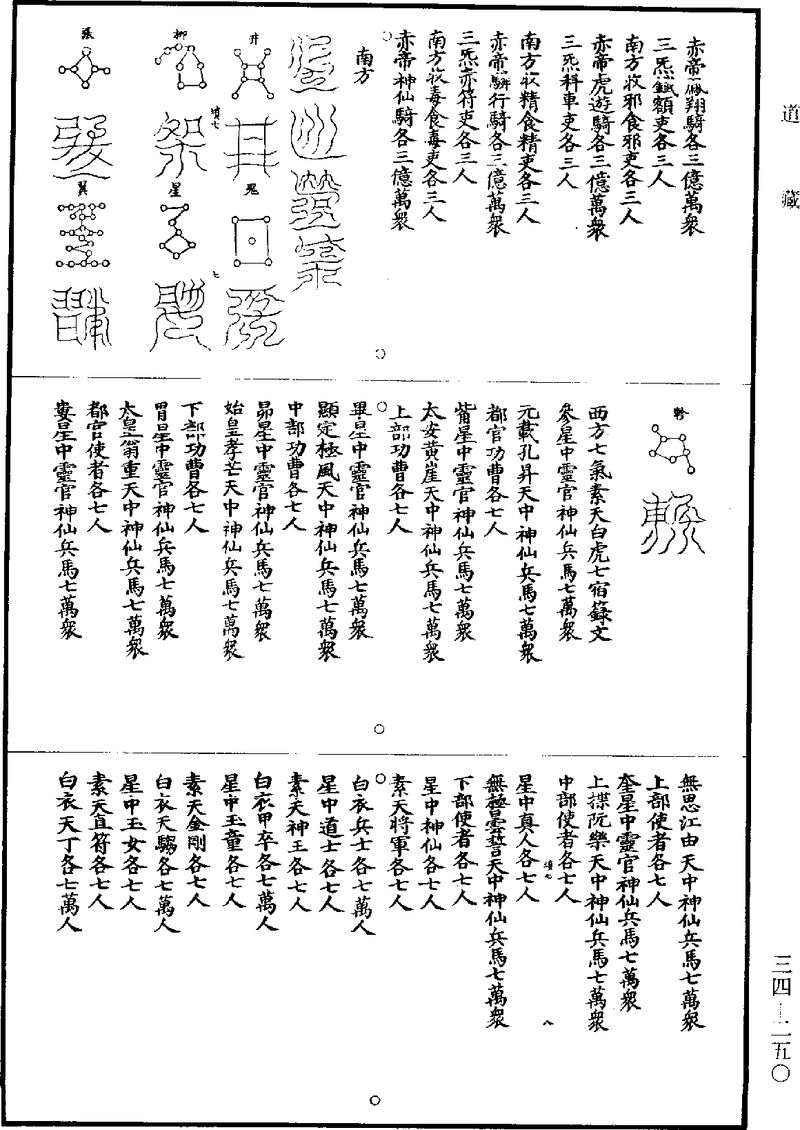 道藏
赤帝翔騎各三億萬衆
三炁額吏各三人
南方收邪食邪吏各三人
赤帝虎遊騎各三億萬衆
三炁科車吏各三人
南方收精食精吏各三人
赤帝行騎各三億萬衆
三炁赤符吏各三人
南方收毒食毒吏各三人
赤帝神仙騎各三億萬衆
南方
井
鬼
柳
星
張
翼
軫
西方七氣素天白虎七宿籙文
參星中靈官神仙兵馬七萬衆
元載孔昇天中神仙兵馬七萬衆
都官功曹各七人
觜星中靈官神仙兵馬七萬衆
太安黃崖天中神仙兵馬七萬衆
上部功曹各七人
畢星中靈官神仙兵馬七萬衆
顯定極風天中神仙兵馬七萬衆
中部功曹各七人
昴星中靈官神仙兵馬七萬衆
始皇孝芒天中神仙兵馬七萬衆
下部功曹各七人
胃星中靈官神仙兵馬七萬衆
太皇翁重天中神仙兵馬七萬衆
都官使者各七人
婁星中靈官神仙兵馬七萬衆
無思江由天中神仙兵馬七萬衆
上部使者各七人
奎星中靈官神仙兵馬七萬衆
上揲阮樂天中神仙兵馬七萬衆
中部使者各七人
星中真人各七人
無極曇誓天中神仙兵馬七萬衆
下部使者各七人
星中神仙各七人
素天將軍各七人
白衣兵士各七萬人
星中道士各七人
素天神王各七人
白衣甲卒各七萬人
星中玉童各七人
素天金剛各七人
白衣天騶各七萬人
星中玉女各七人
素天直符各七人
白衣天丁各七萬人
三四—二五〇